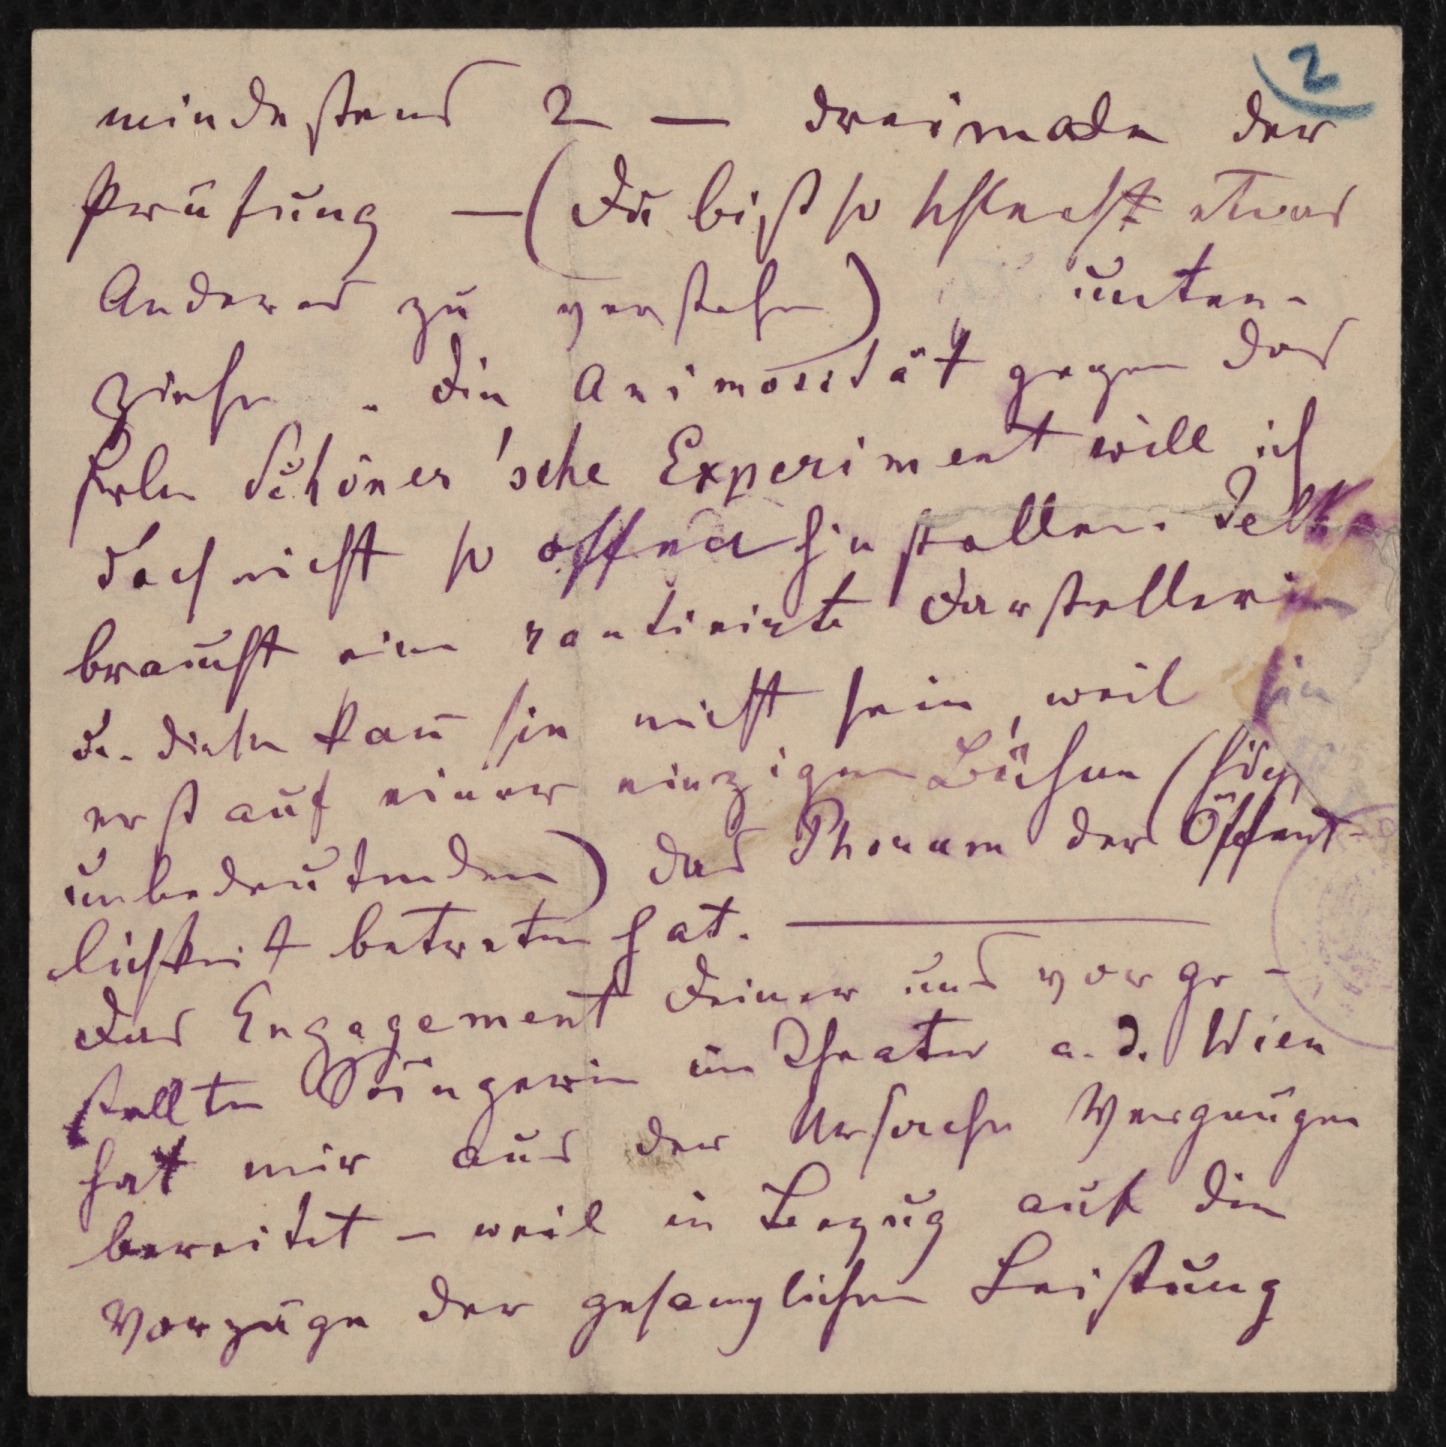 2
mindestens 2 — dreimale der
Prüfung — (Du bist so schlecht etwas
Anderes zu verstehen) unter-
ziehe. Die Animosität gegen das
Frln Schöner'sche Experiment will ich
doch nicht so offen hinstellen.
braucht eine routinirte Darstellerin
diese kann sie nicht sein, weil sie
erst auf einer einzigen Bühne (
unbedeutenden) das Phorum der Öffent-
lichkeit betreten hat. —
Das Engagement Deiner uns vorge-
stellten Sängerin im Theater a. d. Wien
hat mir aus der Ursache Vergnügen
bereitet — weil in Bezug auf die
Vorzüge der gesanglichen Leistung